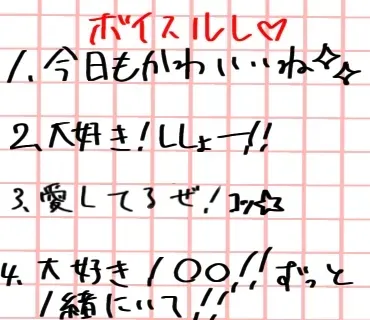 ボイスルし♡
1.今日もかわいいね✧✧
2.大好き!ししょー!!
3.愛してるぜ!コツ☆
4.大好き!〇〇!!ずっと
1緒にいて!!